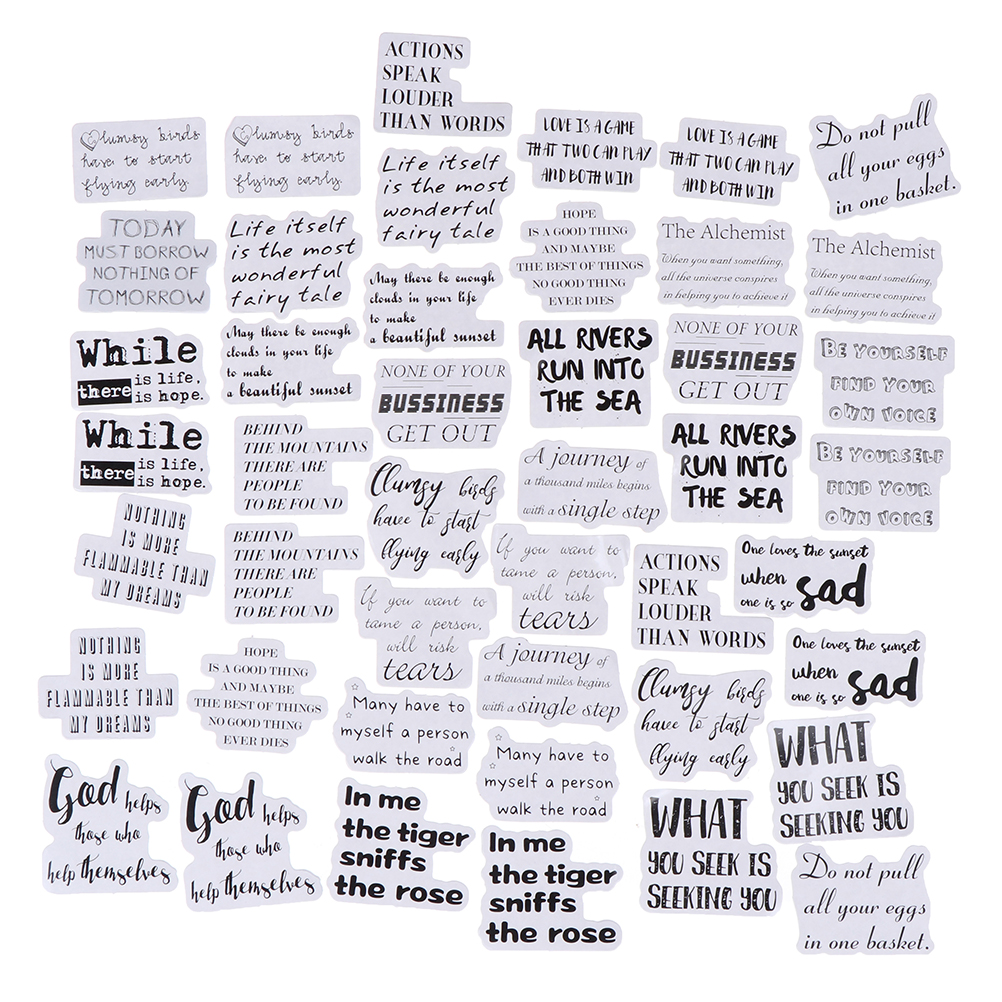 ACTIONS
SPEAK
LOUDER
THAN WORDS
Clumsy birds
have to start
flying early.
Clumsy birds
have to start
flying early.
Life itself
is the most
wonderful
fairy tale
LOVE IS A GAME
THAT TWO CAN PLAY
AND BOTH WIN
LOVE IS A GAME
THAT TWO CAN PLAY
AND BOTH WIN
Do not pull
all your eggs
in one basket.
TODAY
MUST BORROW
NOTHING OF
TOMORROW
Life itself
is the most
wonderful
fairy tale
HOPE
IS A GOOD THING
AND MAYBE
THE BEST OF THINGS
NO GOOD THING
EVER DIES
The Alchemist
When you want something,
all the universe conspires
in helping you to achieve it
The Alchemist
When you want something,
all the universe conspires
in helping you to achieve it
May there be enough
clouds in your life
to make
a beautiful sunset
While
there is life,
is hope.
May there be enough
clouds in your life
to make
a beautiful sunset
NONE OF YOUR
BUSSINESS
GET OUT
ALL RIVERS
RUN INTO
THE SEA
NONE OF YOUR
BUSSINESS
GET OUT
BE YOURSELF
FIND YOUR
OWN VOICE
While
there is life,
is hope.
BEHIND
THE MOUNTAINS
THERE ARE
PEOPLE
TO BE FOUND
Clumsy birds
have to start
flying early
A journey of
a thousand miles begins
with a single step
ALL RIVERS
RUN INTO
THE SEA
BE YOURSELF
FIND YOUR
OWN VOICE
NOTHING
IS MORE
FLAMMABLE THAN
MY DREAMS
BEHIND
THE MOUNTAINS
THERE ARE
PEOPLE
TO BE FOUND
If you want to
tame a person,
will risk
tears
If you want to
tame a person,
will risk
tears
ACTIONS
SPEAK
LOUDER
THAN WORDS
One loves the sunset
when
one is so sad
NOTHING
IS MORE
FLAMMABLE THAN
MY DREAMS
HOPE
IS A GOOD THING
AND MAYBE
THE BEST OF THINGS
NO GOOD THING
EVER DIES
Many have to
myself a person
walk the road
A journey of
a thousand miles begins
with a single step
Clumsy birds
have to start
flying early
One loves the sunset
when
one is so sad
God helps
those who
help themselves
God helps
those who
help themselves
In me
the tiger
sniffs
the rose
Many have to
myself a person
walk the road
In me
the tiger
sniffs
the rose
WHAT
YOU SEEK IS
SEEKING YOU
WHAT
YOU SEEK IS
SEEKING YOU
Do not pull
all your eggs
in one basket.